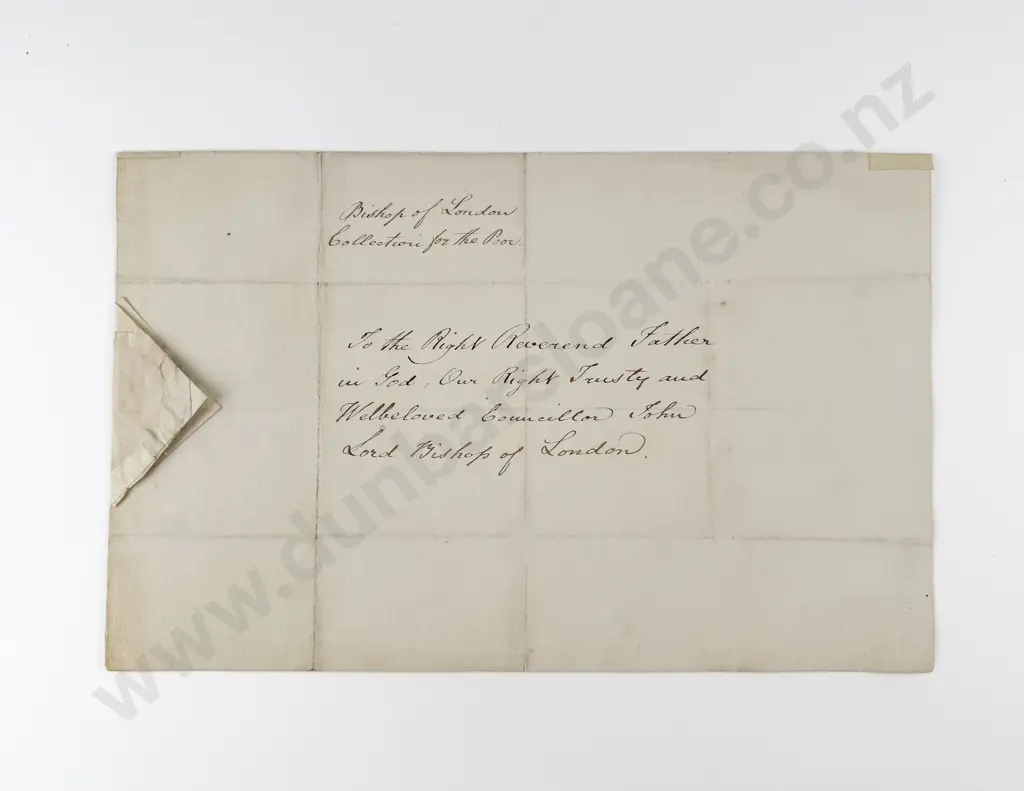 Bishop of London
Collection for the Poor.
To the Right Reverend Father
in God, Our Right Trusty and
Welbeloved Councillor John
Lord Bishop of London.
www.dunbarsloane.co.nz